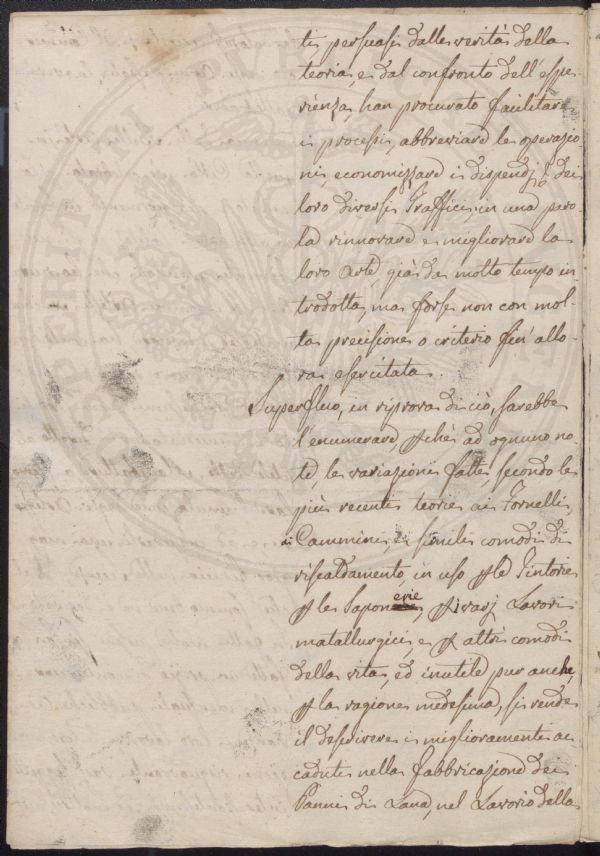 ti persuasi dalla verità della
teoria, e dal confronto dell'espe
rienza, han procurato facilitare
i processi, abbreviare le operazio
ni, economizzare i dispendj dei
loro diversi Traffici, in una paro
la rinnovare e migliorare la
loro Arte, già da molto tempo in
trodotta, ma forse non con mol
ta precisione o criterio fin' allo
ra esercitata.
Superfluo, in riprova di ciò, sarebbe
l'enumerare, perchè ad ognuno no
te, le variazioni fatte secondo le
più recenti teorie ai Fornelli,
ai Cammini, e simili comodi di
riscaldamento, in uso per le Tintorie
per le Saponerie, per varj Lavori
metallurgici, e per altri comodi
della vita, ed inutile pur anche,
per la ragione medesima, si rende
il descrivere i miglioramenti ac
caduti nella fabbricazione dei
Panni di Lana, nel Lavorio della